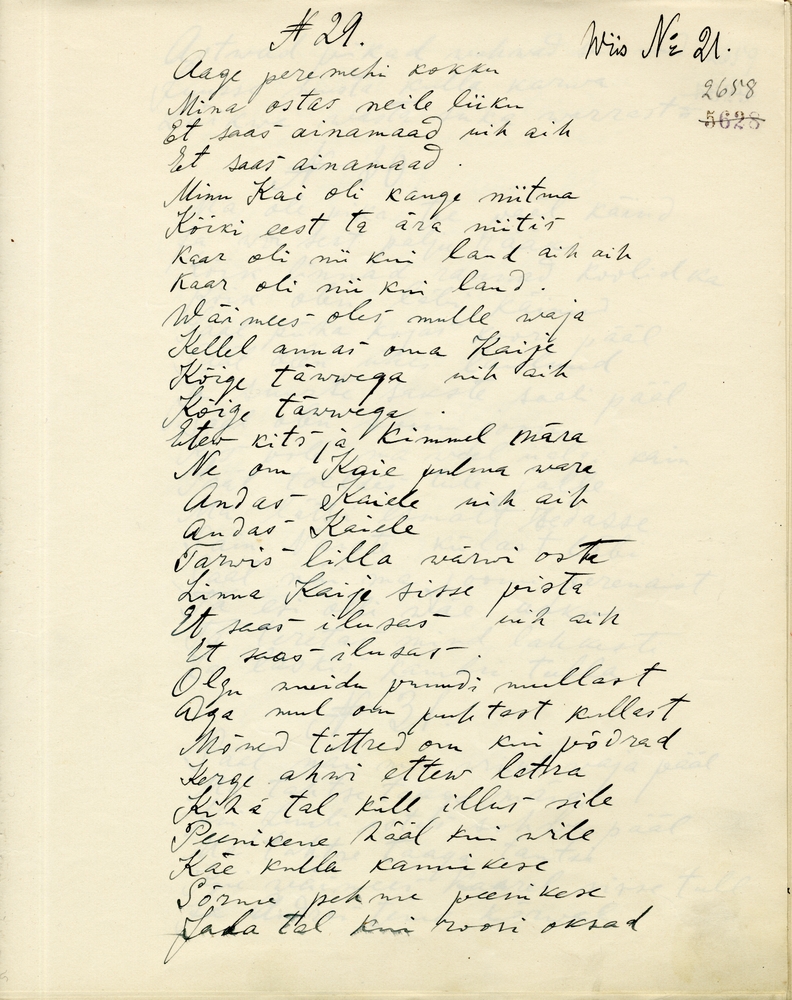 # 29.
Wiis № 21.
2658
5628
Aage peremehi kokku
Mina ostas neile liiku
Et saas ainamaad uih aih
Et saas ainamaad.
Minu Kai oli kange niitma
Kõiki eest ta ära niitis
Kaar oli nii kui laud aih aih
Kaar oli nii kui laud.
Wäimees oles mulle waja
Kellel annas oma Kaije
Kõige täwwega uih aih
Kõige täwwega.
Etew kits ja Kimmel mära
Ne om Kaie pulma wara
Andas Kaiele uih aih
Andas Kaiele
Tarwis lilla wärwi osta
Linna Kaije sisse pista
Et saas ilusas uih aih
Et saas ilusas.
Olgu muidu pruudi mullast
Aga mul om puhtast kullast
Mõned tüttred om kui põdrad
Kerge ahwi ettew latsra
Kihä tal küll illus sile
Peenikene hääl kui wile
Käe kulla kannikese
Sõrme pehme peenikese
Jala tal kui roosi oksad